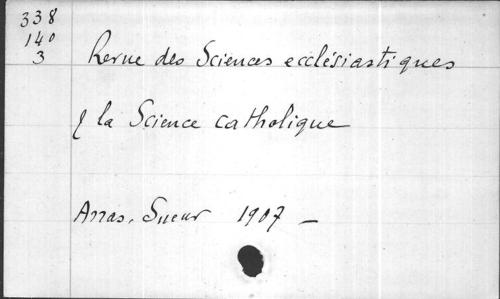 338
140
3
Revue des Sciences ecclésiastiques
& la Science catholique
Arras, Sueur 1907 —